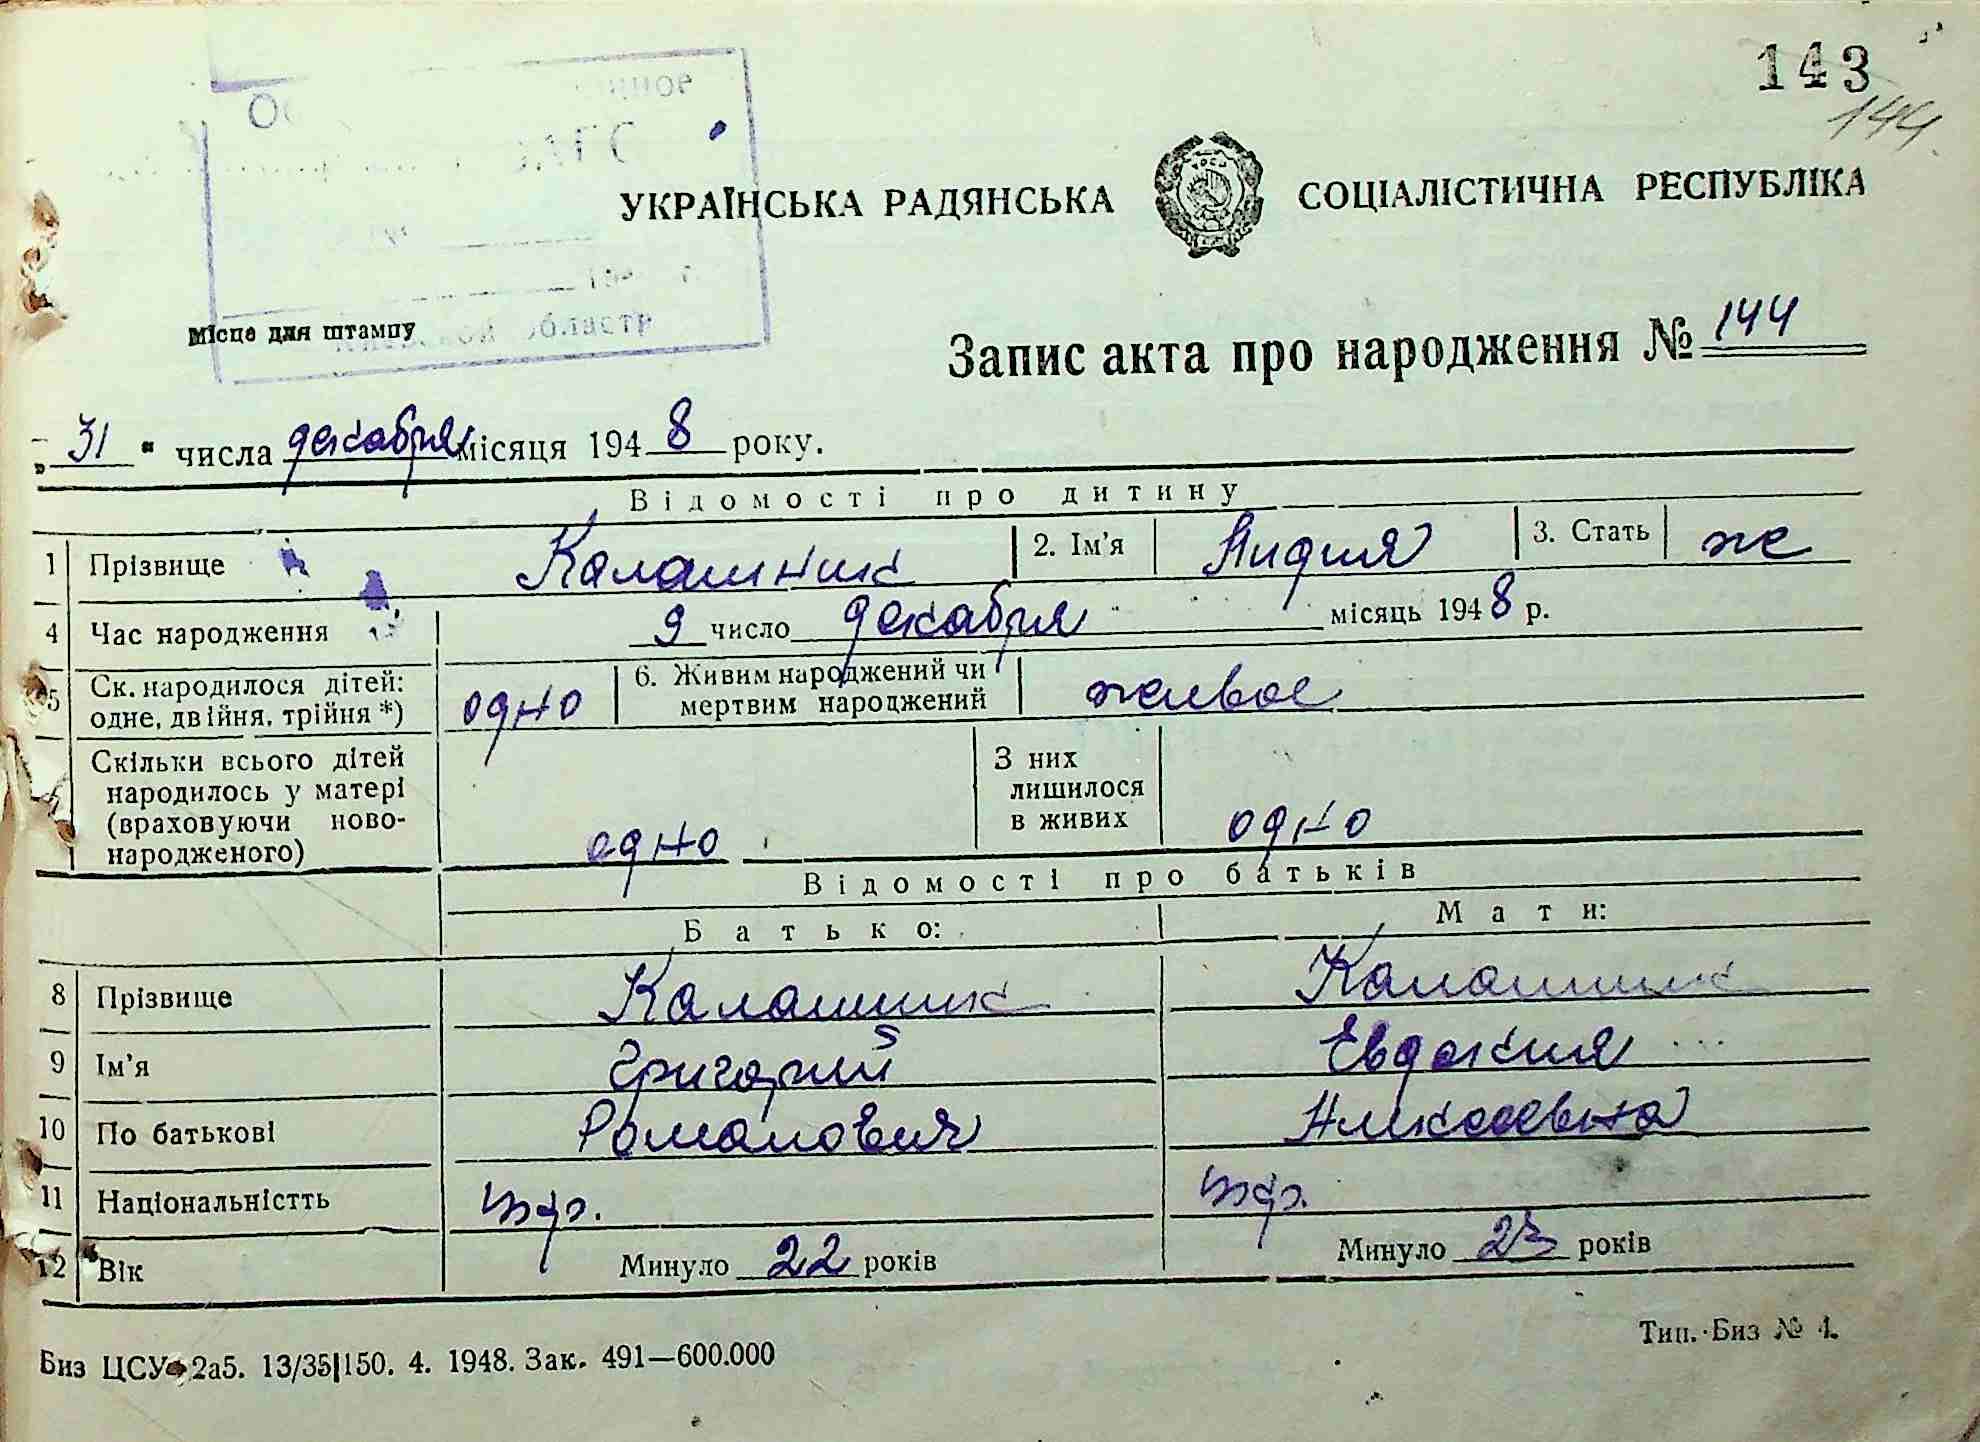 143
144
УКРАЇНСЬКА РАДЯНСЬКА СОЦІАЛІСТИЧНА РЕСПУБЛІКА
ЗАГС
области
Місце для штампу
Запис акта про народження № 144
„31“ числа декабря місяця 1948 року.
Відомості про дитину
1 Прізвище Калашник 2. Ім’я Лидия 3. Стать же
4 Час народження 9 число декабря місяць 1948 р.
5 Ск. народилося дітей: одне, двійня, трійня *) одно 6. Живим народжений чи мертвим народжений живое
Скільки всього дітей народилось у матері (враховуючи новонародженого) одно З них лишилося в живих одно
Відомості про батьків
Батько: Мати:
8 Прізвище Калашник Калашник
9 Ім’я Григорий Евдокия
10 По батькові Романович Алексеевна
11 Національністть укр. укр.
12 Вік Минуло 22 років Минуло 23 років
Биз ЦСУ 2а5. 13/35|150. 4. 1948. Зак. 491—600.000
Тип. Биз № 4.